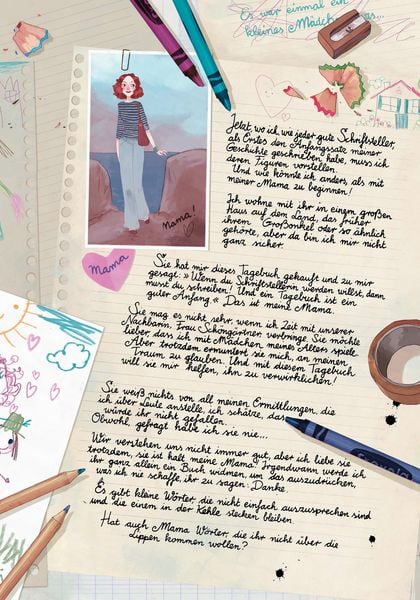 Es war einmal ein
kleines Mädchen, das...
Jetzt, wo ich wie jeder gute Schriftsteller
als Erstes den Anfangssatz meiner
Geschichte geschrieben habe, muss ich
deren Figuren vorstellen.
Und wie könnte ich anders, als mit
meiner Mama zu beginnen!
Ich wohne mit ihr in einem großen
Haus auf dem Land, das früher
ihrem Großonkel oder so ähnlich
gehörte, aber da bin ich mir nicht
ganz sicher.
Mama!
Mama
Sie hat mir dieses Tagebuch gekauft und zu mir
gesagt: »Wenn du Schriftstellerin werden willst, dann
musst du schreiben! Und ein Tagebuch ist ein
guter Anfang.« Das ist meine Mama.
Sie mag es nicht sehr, wenn ich Zeit mit unserer
Nachbarin, Frau Schöngärtner verbringe. Sie möchte
lieber, dass ich mit Mädchen meines Alters spiele.
Aber trotzdem ermuntert sie mich, an meinen
Traum zu glauben. Und mit diesem Tagebuch
will sie mir helfen, ihn zu verwirklichen!
Sie weiß nichts von all meinen Ermittlungen, die
ich über Leute anstelle, ich schätze, das
würde ihr nicht gefallen.
Obwohl, gefragt habe ich sie nie...
Wir verstehen uns nicht immer gut, aber ich liebe sie
trotzdem, sie ist halt meine Mama! Irgendwann werde ich
ihr ganz allein ein Buch widmen, um das auszudrücken,
was ich nie schaffe, ihr zu sagen: Danke.
Es gibt kleine Wörter, die nicht einfach auszusprechen sind
und die einem in der Kehle stecken bleiben.
Hat auch Mama Wörter, die ihr nicht über die
Lippen kommen wollen?